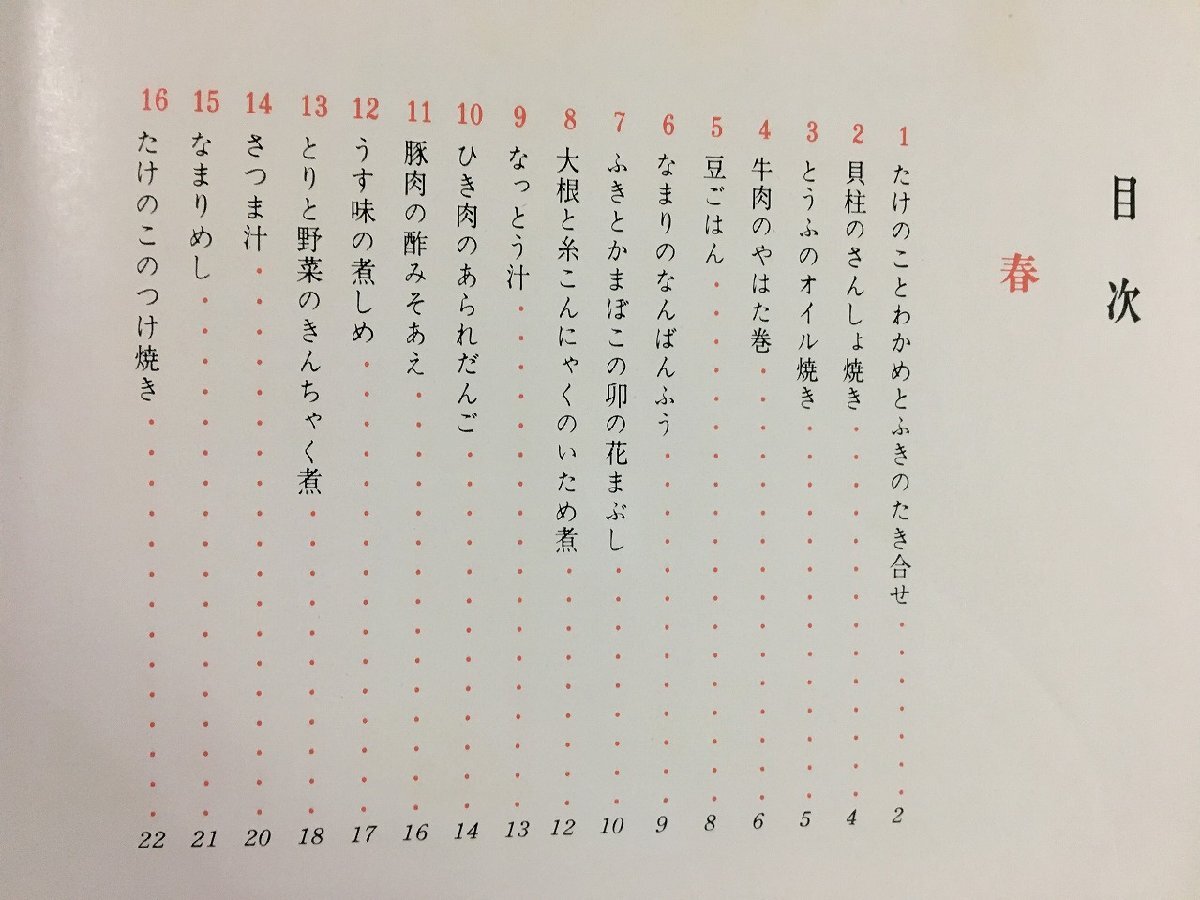 目次
春
1 たけのことわかめとふきのたき合せ 2
2 貝柱のさんしょ焼き 4
3 とうふのオイル焼き 5
4 牛肉のやはた巻 6
5 豆ごはん 8
6 なまりのなんばんふう 9
7 ふきとかまぼこの卯の花まぶし 10
8 大根と糸こんにゃくのいため煮 12
9 なっとう汁 13
10 ひき肉のあられだんご 14
11 豚肉の酢みそあえ 16
12 うす味の煮しめ 17
13 とりと野菜のきんちゃく煮 18
14 さつま汁 20
15 なまりめし 21
16 たけのこのつけ焼き 22